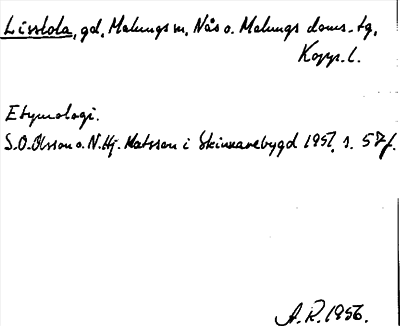 Lisstola, gd, Malungs sn, Nås o. Malungs doms. tg,
Kopp. l.
Etymologi.
S.O. Olsson o. N. Hj. Matsson i Skinnarebygd 1951, s. 57f.
A.R. 1956.